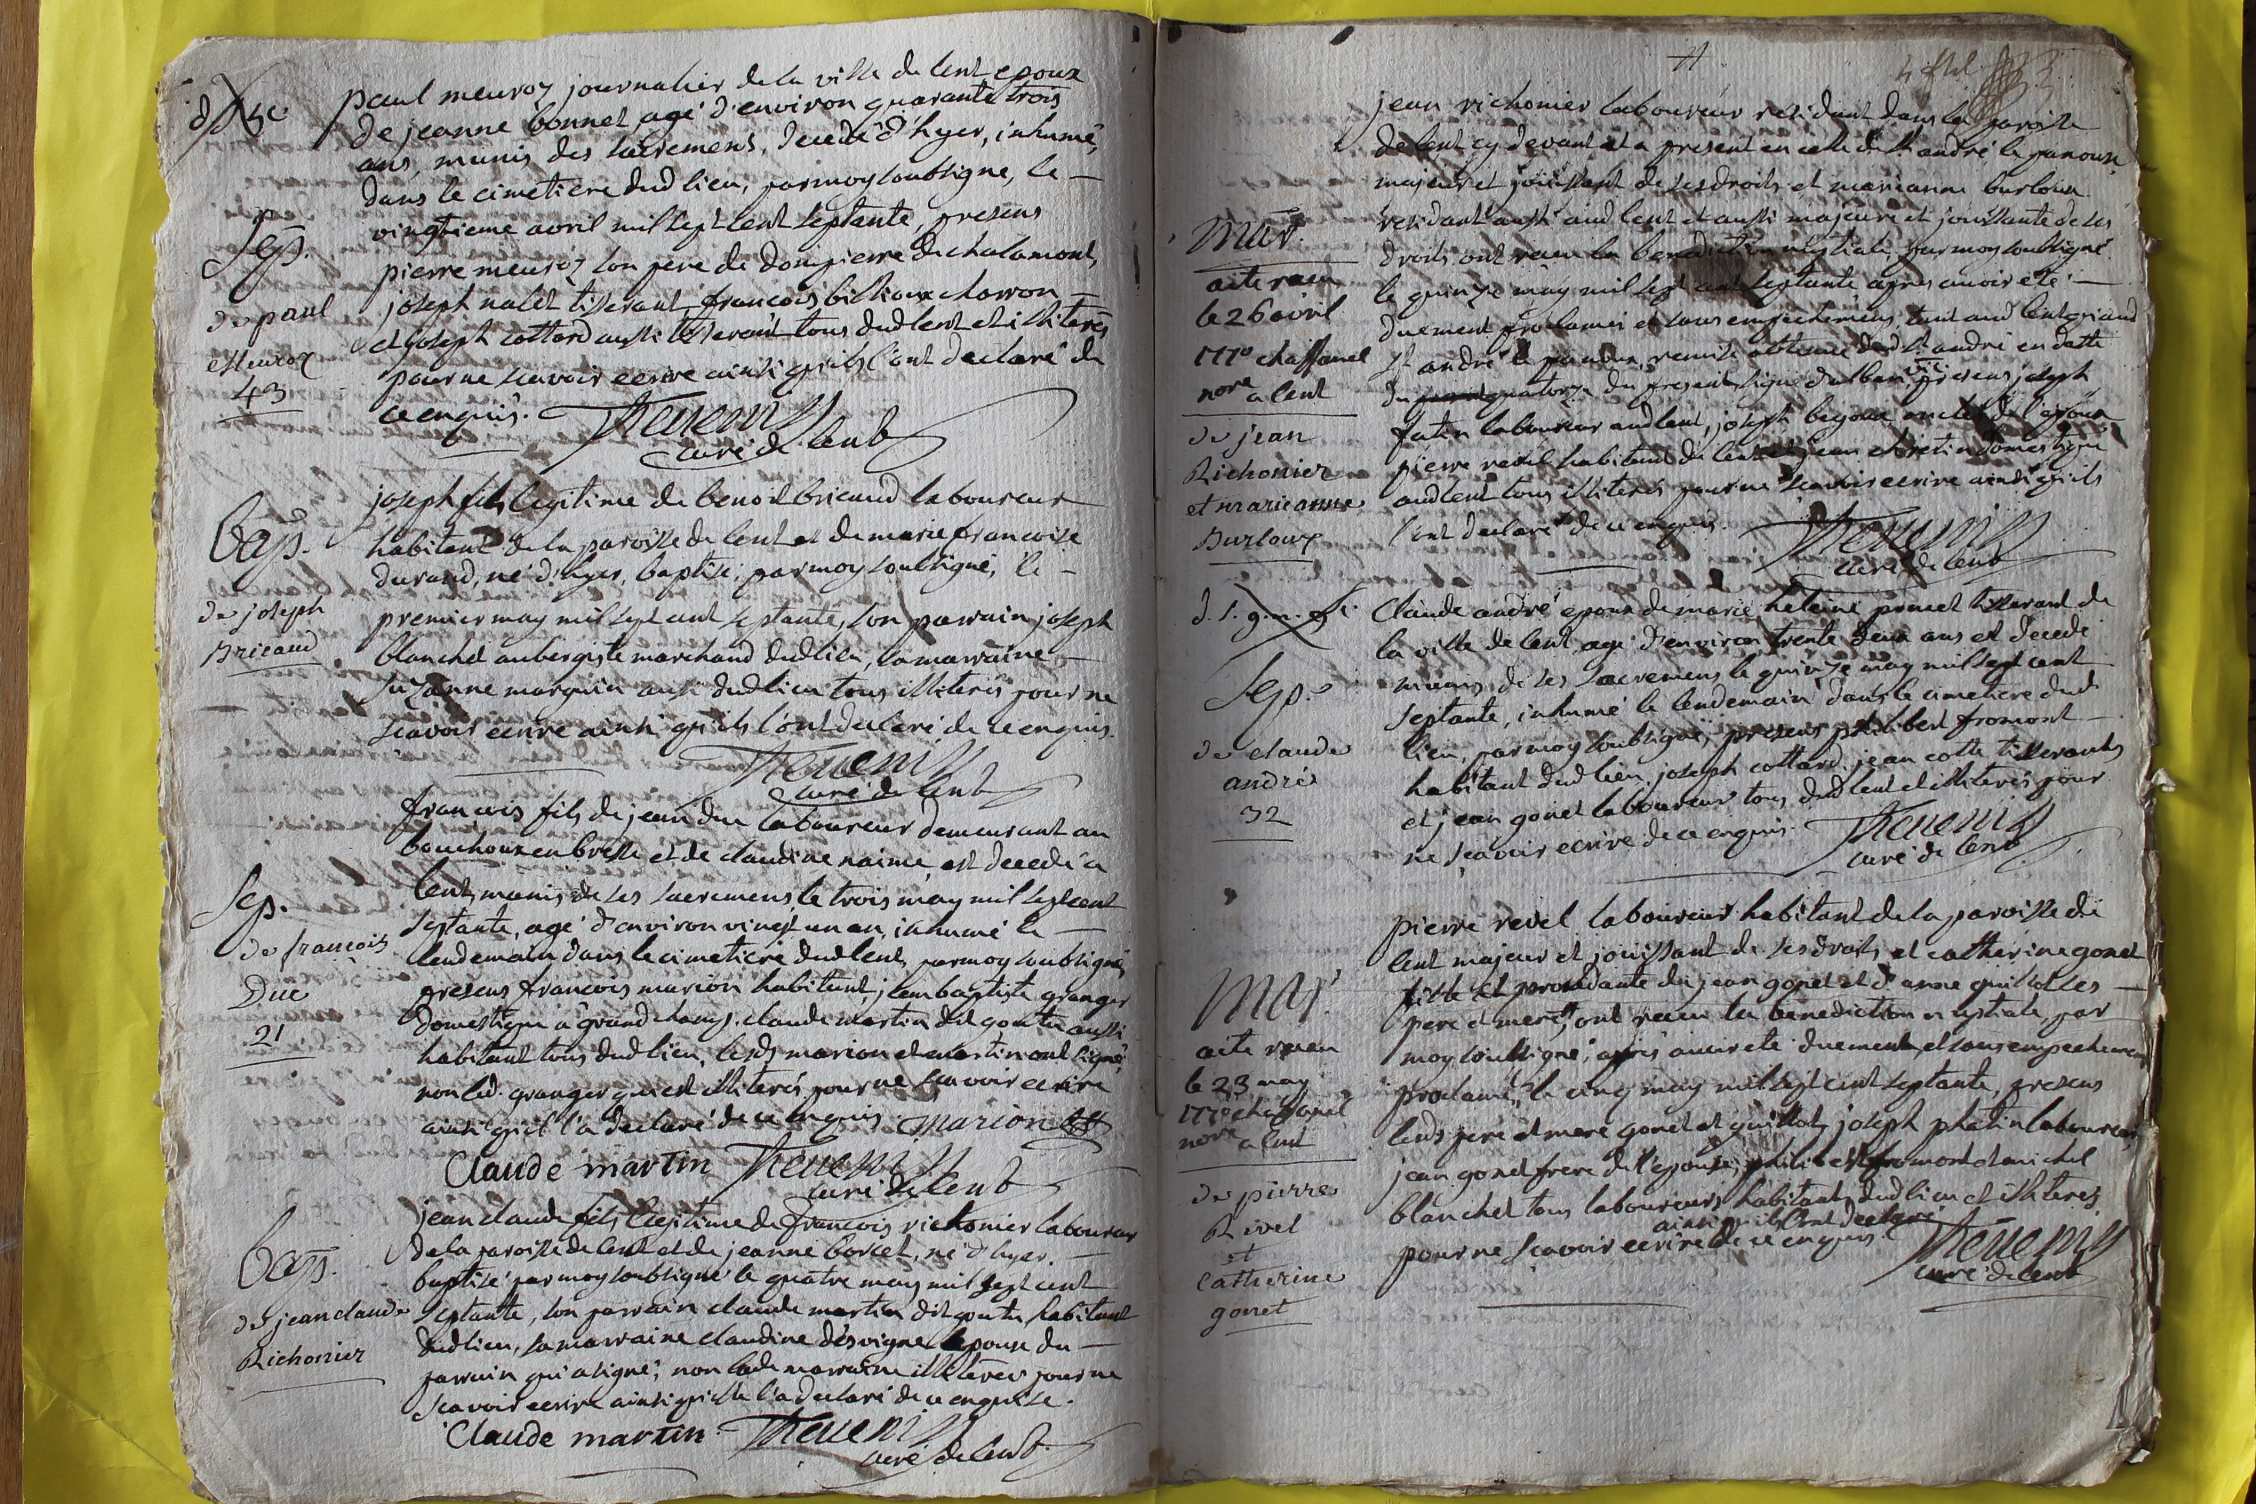 paul meuroz journalier de la ville de lent epoux
de jeanne bonnet, agé d'environ quarante trois
ans, munis des sacremens, decedé d'hyer, inhumé,
dans le cimetiere dud lieu, par moy soubsigne, le
vingtieme avril mil sept cent septante, presens
pierre meuroz son pere de dompierre de chalamont,
joseph nalet tisserant, francois billioux charron
et joseph cottard aussi tisserant tous dud lent et illiterés
pour ne scavoir ecrire ainsi qu'ils l'ont declaré de
ce enquis.
Thevenin
curé de lent
Sep.
de paul
Meuroz
43
joseph fils legitime de benoit bricaud laboureur
habitant de la paroisse de lent et de marie francoise
durand, né d'hyer, baptisé, par moy soubsigné, le
premier may mil sept cent septante, son parrain joseph
blanchet aubergiste marchand dud lieu, sa marraine
suzanne marguin aussi dud lieu tous illiterés pour ne
scavoir ecrire ainsi qu'ils l'ont declaré de ce enquis.
Thevenin
curé de lent
bap.
de joseph
Bricaud
francois fils de jean duc laboureur demeurant au
bouchoux en bresse et de claudine naime, est decedé a
lent, munis de ses sacremens, le trois may mil sept cent
septante, agé d'environ vingt un an, inhumé le
lendemain dans le cimetiere dud lent, par moy soubsigné,
presens francois marion habitant, jean baptiste granger
domestique a grand champ, claude martin dit goutu aussi
habitant tous dud lieu, lesds marion et martin ont signé,
non led. granger qui est illiterés pour ne scavoir ecrire
ainsi qu'il l'a declaré de ce enquis. marion
Claude martin Thevenin
curé de lent
Sep.
de françois
Duc
21
jean claude fils legitime de francois richonier laboureur
de la paroisse de lent et de jeanne borcet, né d'hyer,
baptisé par moy soubsigné le quatre may mil sept cent
septante, son parrain claude martin dit goutu habitant
dud lieu, sa marraine claudine desvigne epouse du
parrain qui a signé, non lade marraine illiterée pour ne
scavoir ecrire ainsi qu'elle l'a declaré de ce enquise.
Claude martin Thevenin
curé de lent
bap.
de jean claude
Richonier
jean richonier laboureur residant dans la paroisse
de lent cy devant et a present en celle de st andré le panoux
majeur et jouissant de ses droits, et marianne burloux
residant aussi aud lent et aussi majeure et jouissante de ses
droits ont recu la benediction nuptiale, par moy soubsigné
le quinze may mil sept cent septante apres avoir été
duement proclamés et sans empechemens, tant aud lent qu'aud
st andré le panoux, remise obtenue dud st andré en datte
du quatorze du present, presens joseph
fatin laboureur aud lent, joseph begoux oncle de l'epoux
pierre revel habitant de lent et jean chretin domestique
aud lent tous illiterés pour ne scavoir ecrire ainsi qu'ils
l'ont declaré de ce enquis.
Thevenin
curé de lent
Mar.
acte recu
le 26 avril
1770 chassanel
nore a lent
de jean
Richonier
et marieanne
Burloux
Claude andré epoux de marie heleine poncet tisserant de
la ville de lent, agé d'environ trente deux ans est decedé
munis de ses sacremens le quinze may mil sept cent
septante, inhumé le lendemain dans le cimetiere dud
lieu, par moy soubsigné, presens philibert fromont
habitant dud lieu, joseph cottard, jean cotte tisserants
et jean gonet laboureur tous dud lent et illiterés pour
ne scavoir ecrire de ce enquis.
Thevenin
curé de lent
Sep.
de claude
andré
32
pierre revel laboureur habitant de la paroisse de
lent majeur et jouissant de ses droits, et catherine gonet
fille et procedante de jean gonet et d'anne guillot ses
pere et mere, ont recu la benediction nuptiale, par
moy soubsigné, après avoir eté duement et sans empechemens
proclamé, le cinq may mil sept cent septante, presens
lesds pere et mere gonet et guillot, joseph phatin laboureur,
jean gonet frere de l'epouse, philibert fromont et michel
blanchet tous laboureurs habitants dud lieu et illiterés
ainsi qu'ils l'ont declaré
pour ne scavoir ecrire de ce enquis.
Thevenin
curé de lent
Mar.
acte recu
le 23 may
1770 chassanel
nore a lent
de pierre
Revel
et
Catherine
gonet